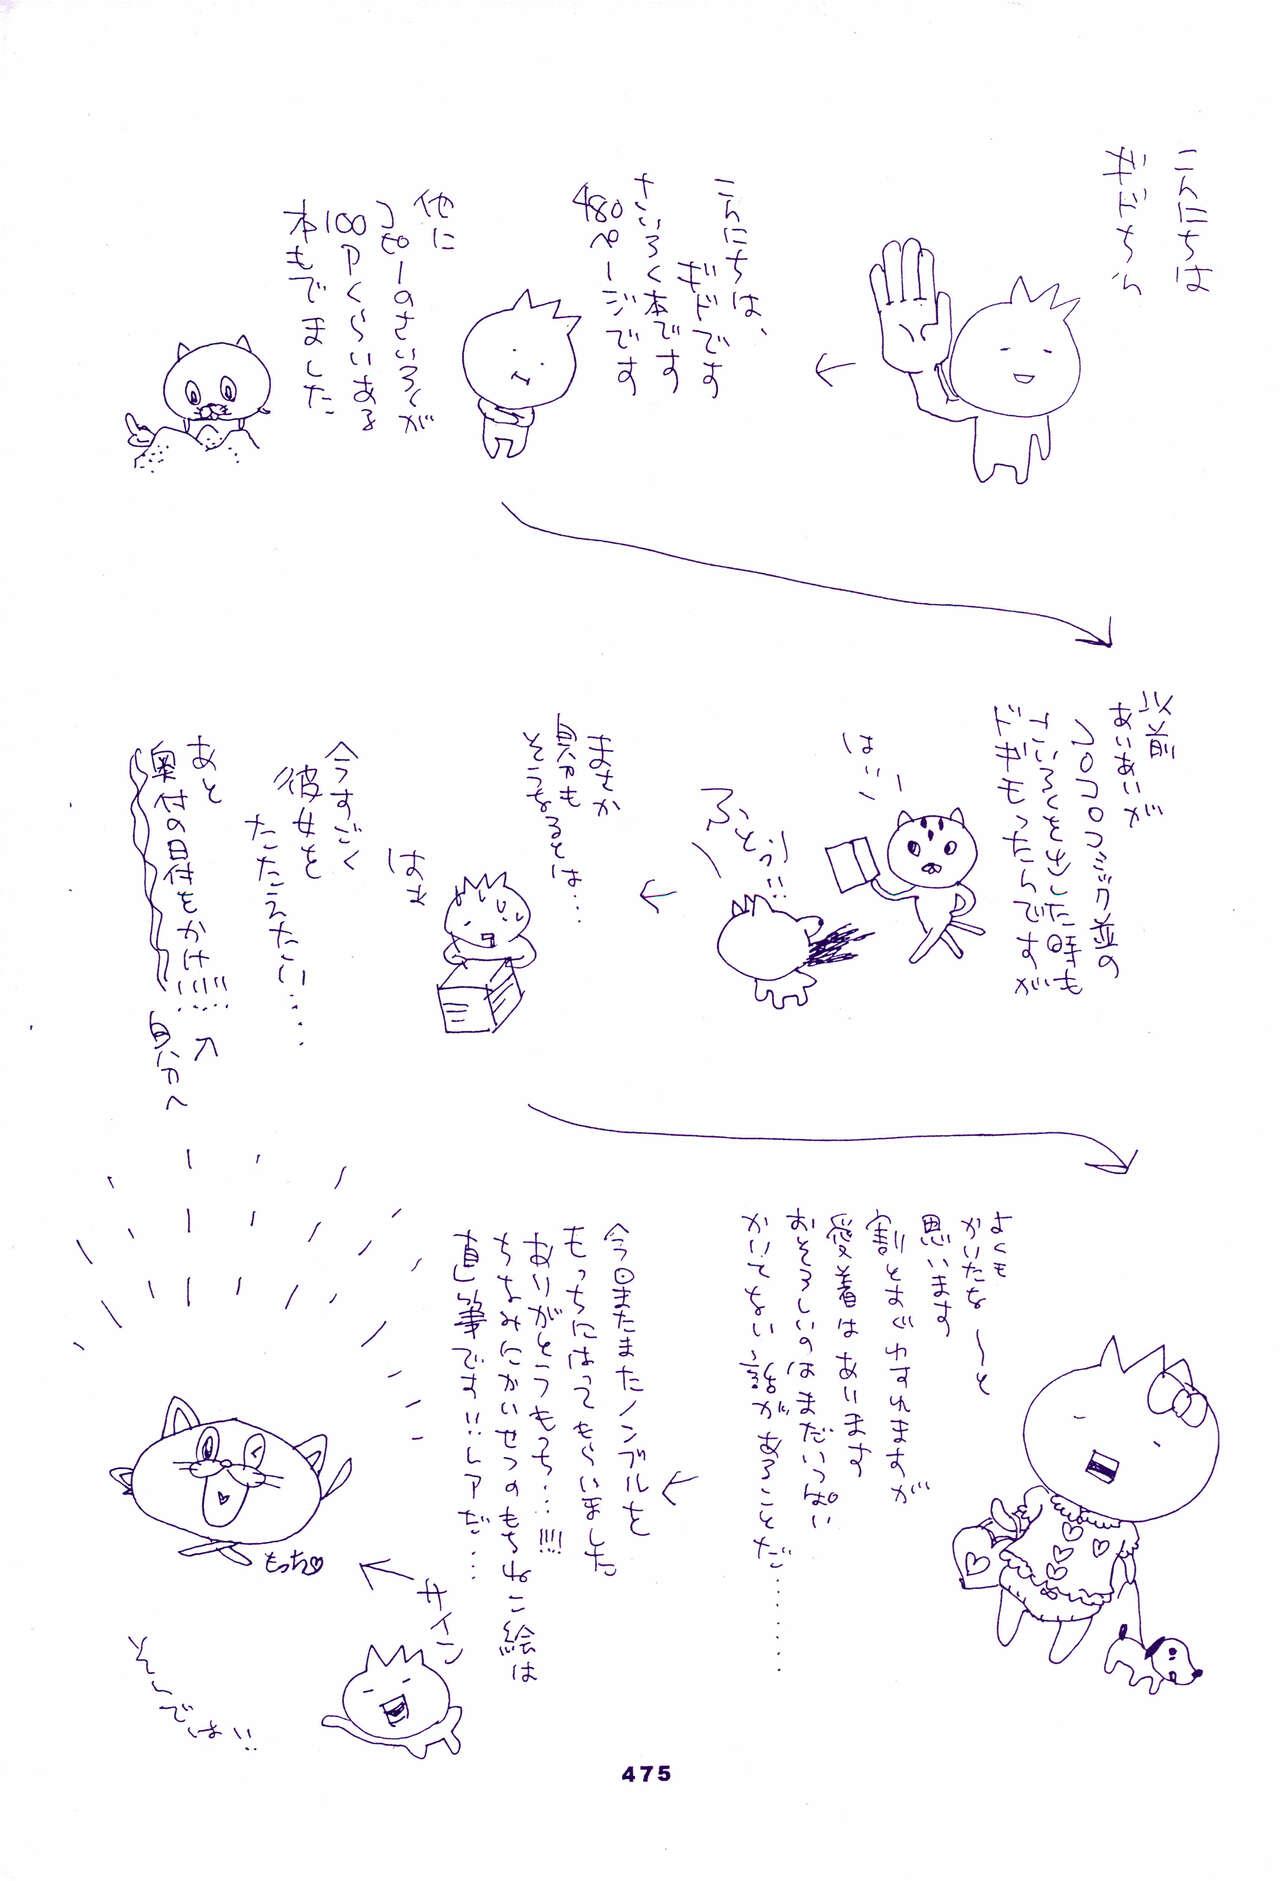 こんにちは
ギドちん
こんにちは、
ギドです
さいろく本です
480ページです
他に
コピーのさいろくが
100Pくらいある
本もでました
以前
あいあいが
コロコロコミック並の
さいろくを出した時も
ドギモったんですが
はいっ
ふとぅっ!!
まさか
自分も
そうなるとは…
はぁ
今すごく
彼女を
たたえたい……
あと
奥付の日付をかけ!!!!!
自分へ
よくも
かいたな〜と
思います
割とすぐわすれますが
愛着はあります
おそろしいのはまだいっぱい
かいてない話があることだ………
今回またまたノンブルを
もっちにはってもらいました
ありがとうもっち…!!!!
ちなみにかいせつのもちねこ絵は
直筆です!!レアだ…
もっち♡
サイン
そーでは!!
475